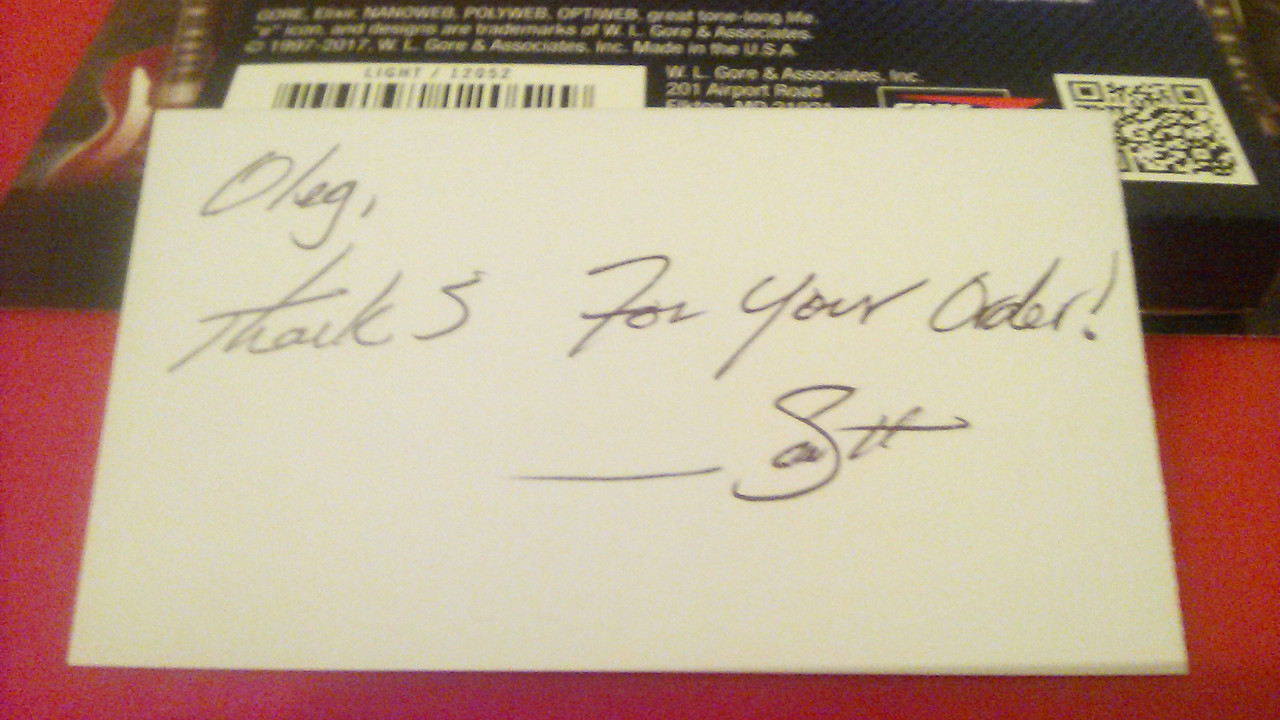 GORE, Elixir, NANOWEB, POLYWEB, OPTIWEB, great tone-long life,
"e" icon, and designs are trademarks of W. L. Gore & Associates.
© 1997-2017, W. L. Gore & Associates, Inc. Made in the U.S.A.
LIGHT / 12052
W. L. Gore & Associates, Inc.
201 Airport Road
Elkton, MD 21921
Oleg,
Thanks For Your Order!
Scott